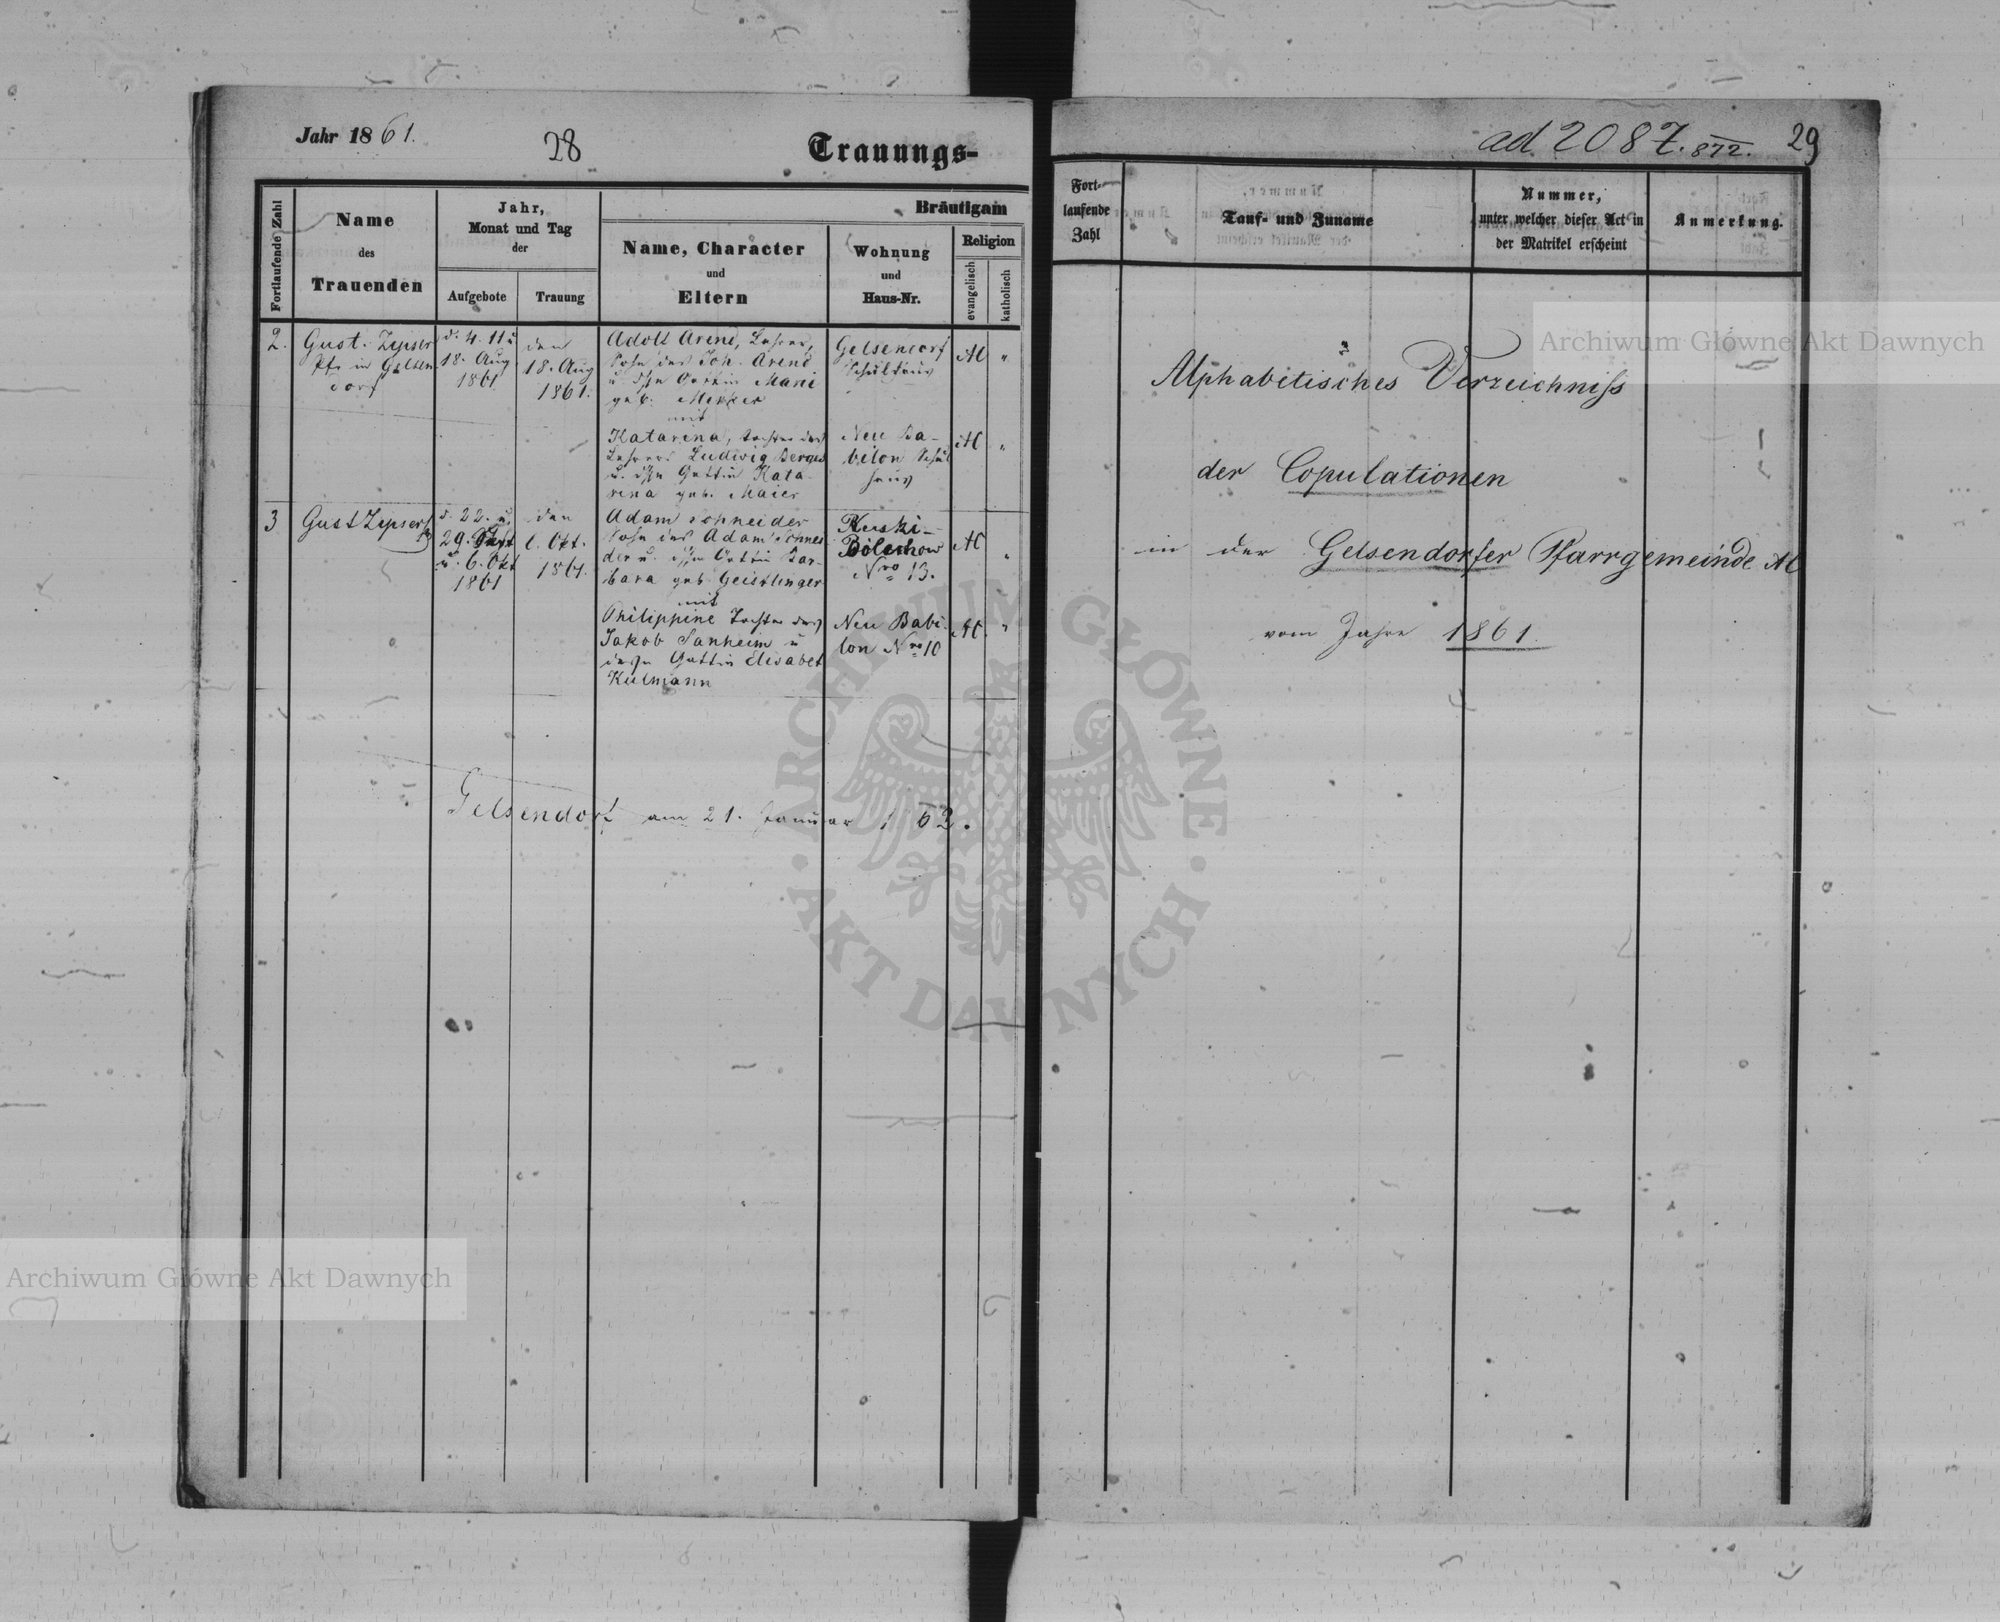 Jahr 1861.
28
Trauungs-
Fortlaufende Zahl
Name
des
Trauenden
Jahr,
Monat und Tag
der
Aufgebote
Trauung
Bräutigam
Name, Character
und
Eltern
Wohnung
und
Haus-Nr.
Religion
evangelisch
katholisch
2.
Gust. Zipser
Pfr in Gelsen
dorf
d. 4. 11 u
18. Aug
1861
den
18. Aug
1861.
Adolf Arend, Lehrer,
Sohn des Joh. Arend
geb.
mit
Katarina, Tochter des
Lehrers Ludwig Berges
u. dssn Gattin Kata-
rina geb. Maier
Gelsendorf
Schulhaus
AC "
Neu Ba-
bilon Schul
haus
AC "
3
Gust Zipser
d. 22. u.
29. Sept
u. 6. Okt
1861
den
6. Okt.
1861.
Adam Schneider
Sohn des Adam Schnei
der u. dssn Gattin Bar-
bara geb. Geistlinger
mit
Philippine Tochter des
Jakob Sanheim u
dessn Gattin Elisabet
Kulmann
Ruski-
Bolechow
Nro 13.
AC "
Neu Babi-
lon Nro 10
AC. "
Gelsendorf am 21. Januar 1862.
ad 2087. 872.
29
Fort-
laufende
Zahl
Tauf- und Zuname
Nummer,
unter welcher dieser Act in
der Matrikel erscheint
Anmerkung.
Alphabetisches Verzeichniss
der Copulationen
in der Gelsendorfer Pfarrgemeinde AC
vom Jahre 1861.
Archiwum Główne Akt Dawnych
ARCHIWUM GŁÓWNE · AKT DAWNYCH ·
Archiwum Główne Akt Dawnych